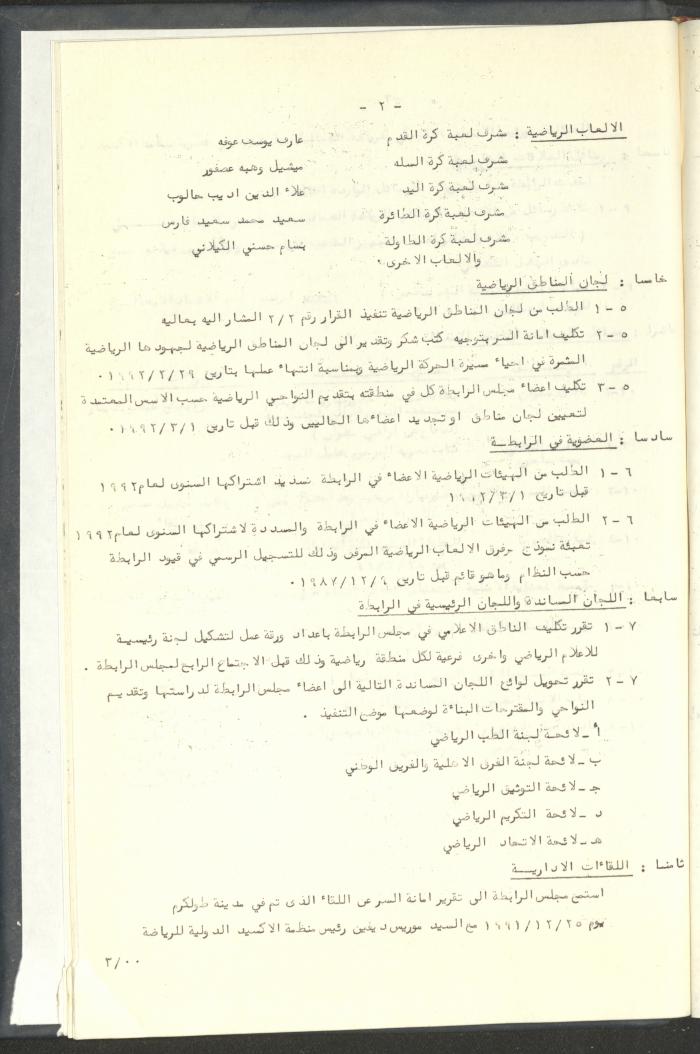 - ٢ -
الالعاب الرياضية : مشرف لعبة كرة القدم عارف يوسف عوفه
مشرف لعبة كرة السله ميشيل وهبه عصفور
مشرف لعبة كرة اليد علاء الدين اديب حالوب
مشرف لعبة كرة الطائرة سعيد محمد سعيد فارس
مشرف لعبة كرة الطاولة بسام حسني الكيلاني
والالعاب الاخرى .
خامسا : لجان المناطق الرياضية
٥ - ١ الطلب من لجان المناطق الرياضية تنفيذ القرار رقم ٢/٢ المشار اليه بعاليه
٥ - ٢ تكليف امانة السر بتوجيه كتب شكر وتقدير الى لجان المناطق الرياضية لجهودها الرياضية
المثمرة في احياء مسيرة الحركة الرياضية وبمناسبة انتهاء عملها بتاريخ ١٩٩٢/٢/٢٩ .
٥ - ٣ تكليف اعضاء مجلس الرابطة كل في منطقته بتقديم النواحي الرياضية حسب الاسس المعتمدة
لتعيين لجان مناطق او تجديد اعضاءها الحاليين وذلك قبل تاريخ ١٩٩٢/٣/١ .
سادسا : العضوية في الرابطة
٦ - ١ الطلب من الهيئات الرياضية الاعضاء في الرابطة تسديد اشتراكها السنوى لعام ١٩٩٢
قبل تاريخ ١٩٩٢/٣/١
٦ - ٢ الطلب من الهيئات الرياضية الاعضاء في الرابطة والمسددة لاشتراكها السنوى لعام ١٩٩٢
تعبئة نموذج الفرق الالعاب الرياضية وذلك للتسجيل الرسمي في قيود الرابطة
حسب النظام وماهو قائم قبل تاريخ ١٩٨٧/١٢/٩ .
سابعا : اللجان المساندة واللجان الرئيسية في الرابطة
٧ - ١ تقرر تكليف الناطق الاعلامي في مجلس الرابطة باعداد ورقة عمل لتشكيل لجنة رئيسية
للاعلام الرياضي واخرى فرعية لكل منطقة رياضية وذلك قبل الاجتماع الرابع لمجلس الرابطة .
٧ - ٢ تقرر تحويل لوائح اللجان المساندة التالية الى اعضاء مجلس الرابطة لدراستها وتقديم
النواحي والمقترحات البناءة لوضعها موضع التنفيذ .
أ - لائحة لجنة الطب الرياضي
ب - لائحة لجنة الفرق الاهلية والفريق الوطني
ج - لائحة التوثيق الرياضي
د - لائحة التكريم الرياضي
هـ - لائحة الاتحاد الرياضي
ثامنا : اللقاءات الادارية
استمع مجلس الرابطة الى تقرير امانة السر عن اللقاء الذى تم في مدينة طولكرم
يوم ١٩٩١/١٢/٢٥ مع السيد موريس ديفين رئيس منظمة الاكسيد الدولية للرياضة
٣/٠٠